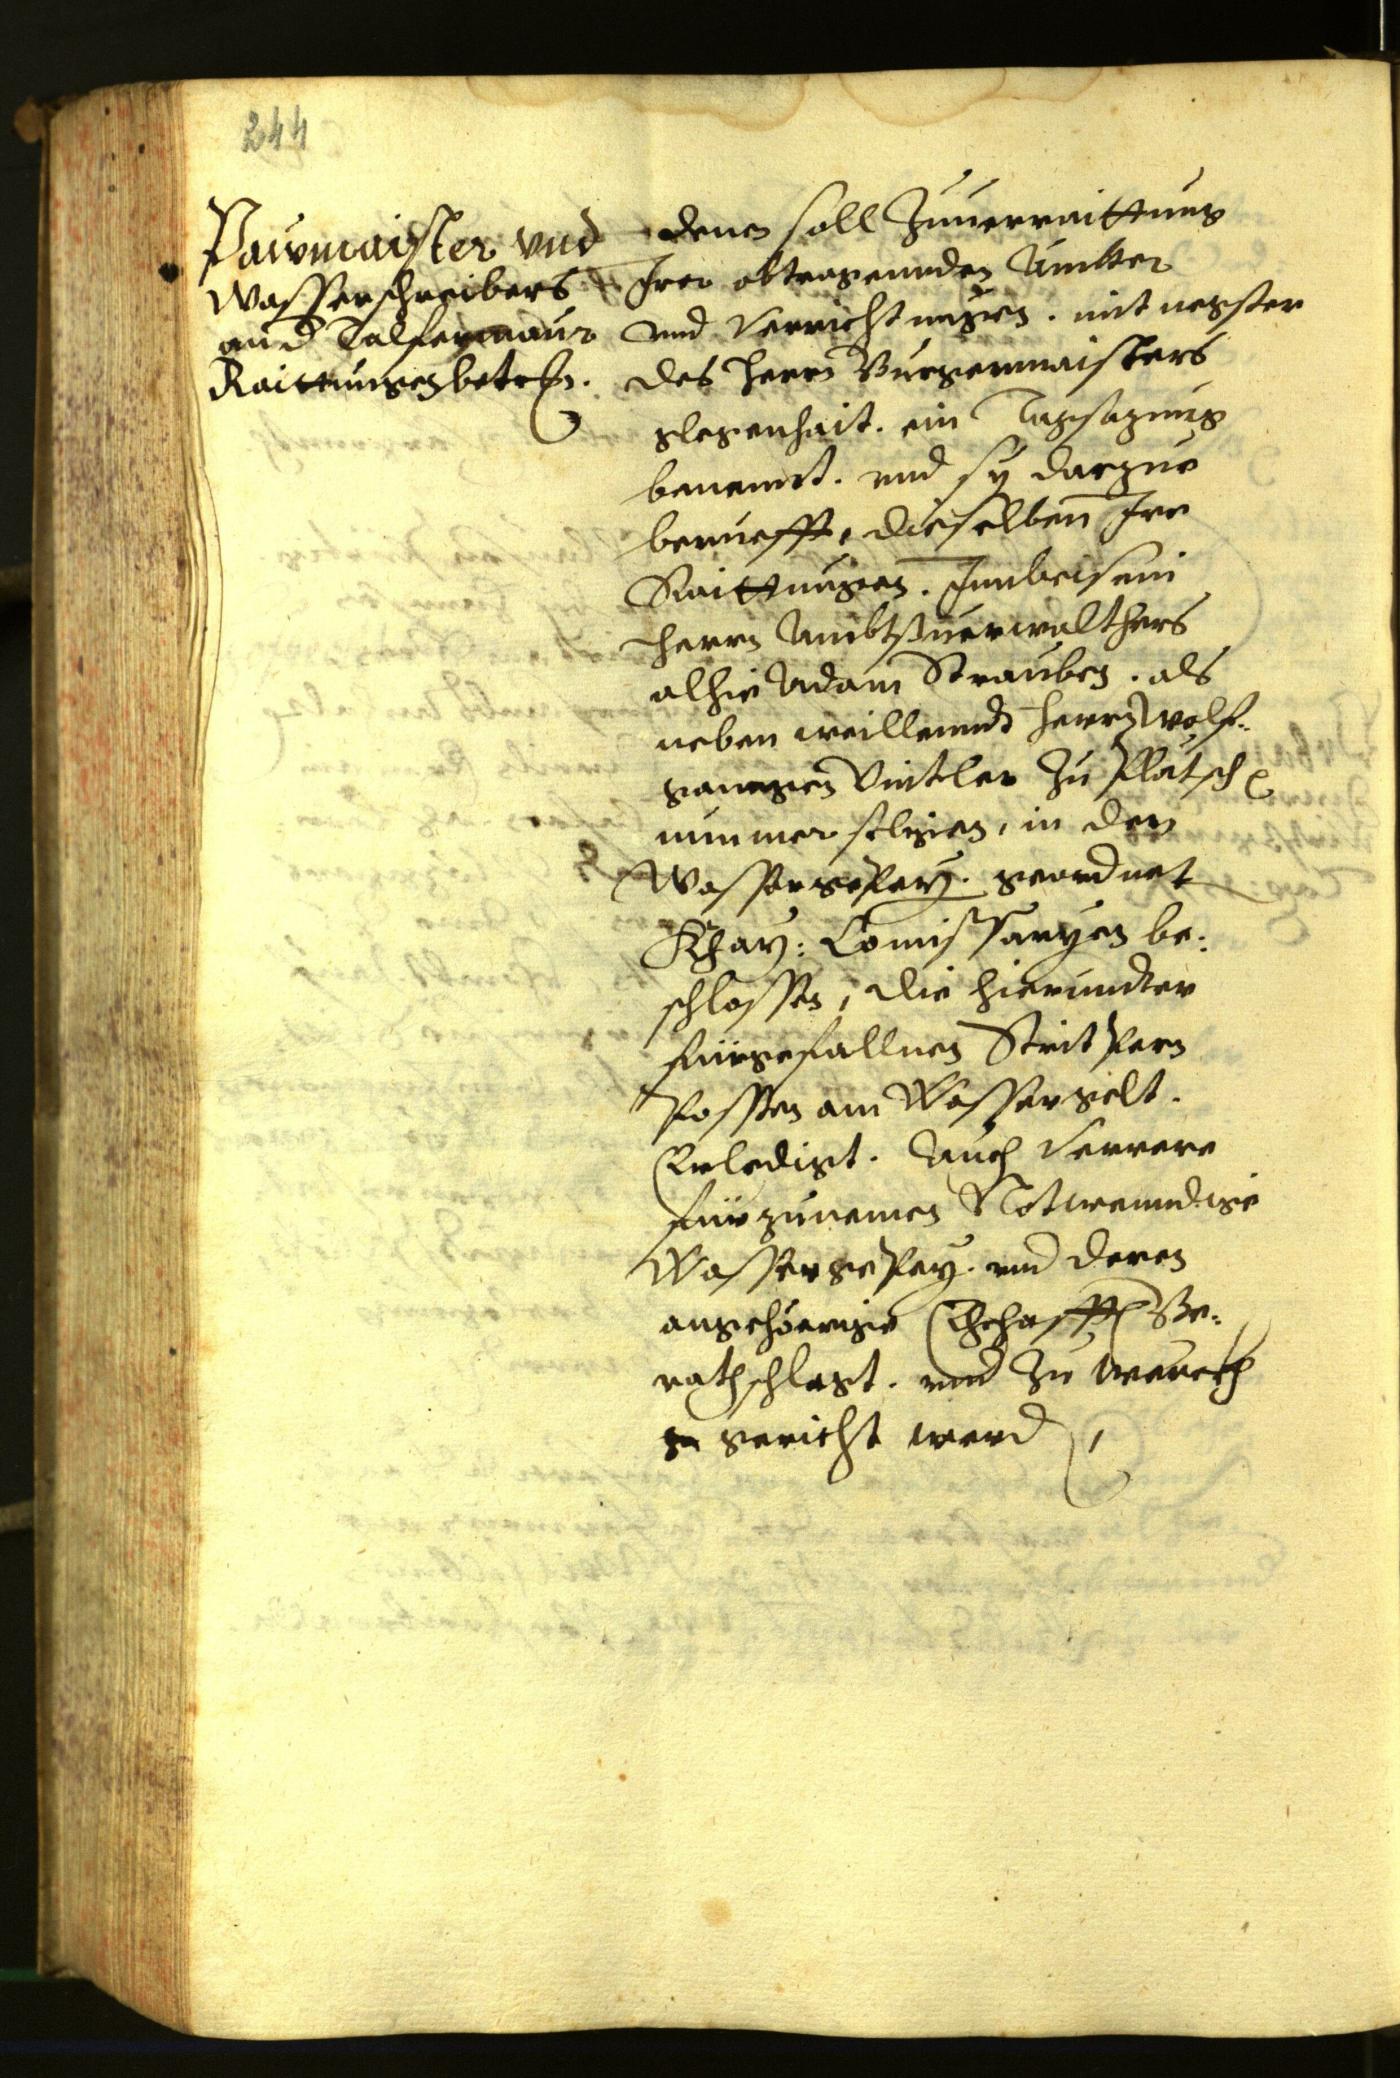 244
Pawmaister vnd
Wasserschreibers
auch Talfermaur
Raittungen betref.
denen soll Zuuerraittung
Irer obtragennden Ämbter
vnd Verrichtungen. mit negster
des herrn Burgermaisters
glegenhait. ein Tagsazung
benennt. vnd sy darzue
beruefft, dieselben Ire
Raittungen. Innbeisein
herrn Ambtsuerwalthers
alhie Adam Strauben. als
neben weillennd herrn Wolf-
ganngen Vintler zu Plätsch
nunmer seligen, in den
Wassergepey. geordnet
Khay: Comissaryen be:
schlossen, die hierundter
fürgefallnen Strit Pern
Possten am Wassergelt.
Erledigt. Auch verrere
fürzunemen Notwenndige
Wassergepey. vnd deren
angehöerige Ehehafften Be:
rathschlagt. vnd zu werckh
gericht werd